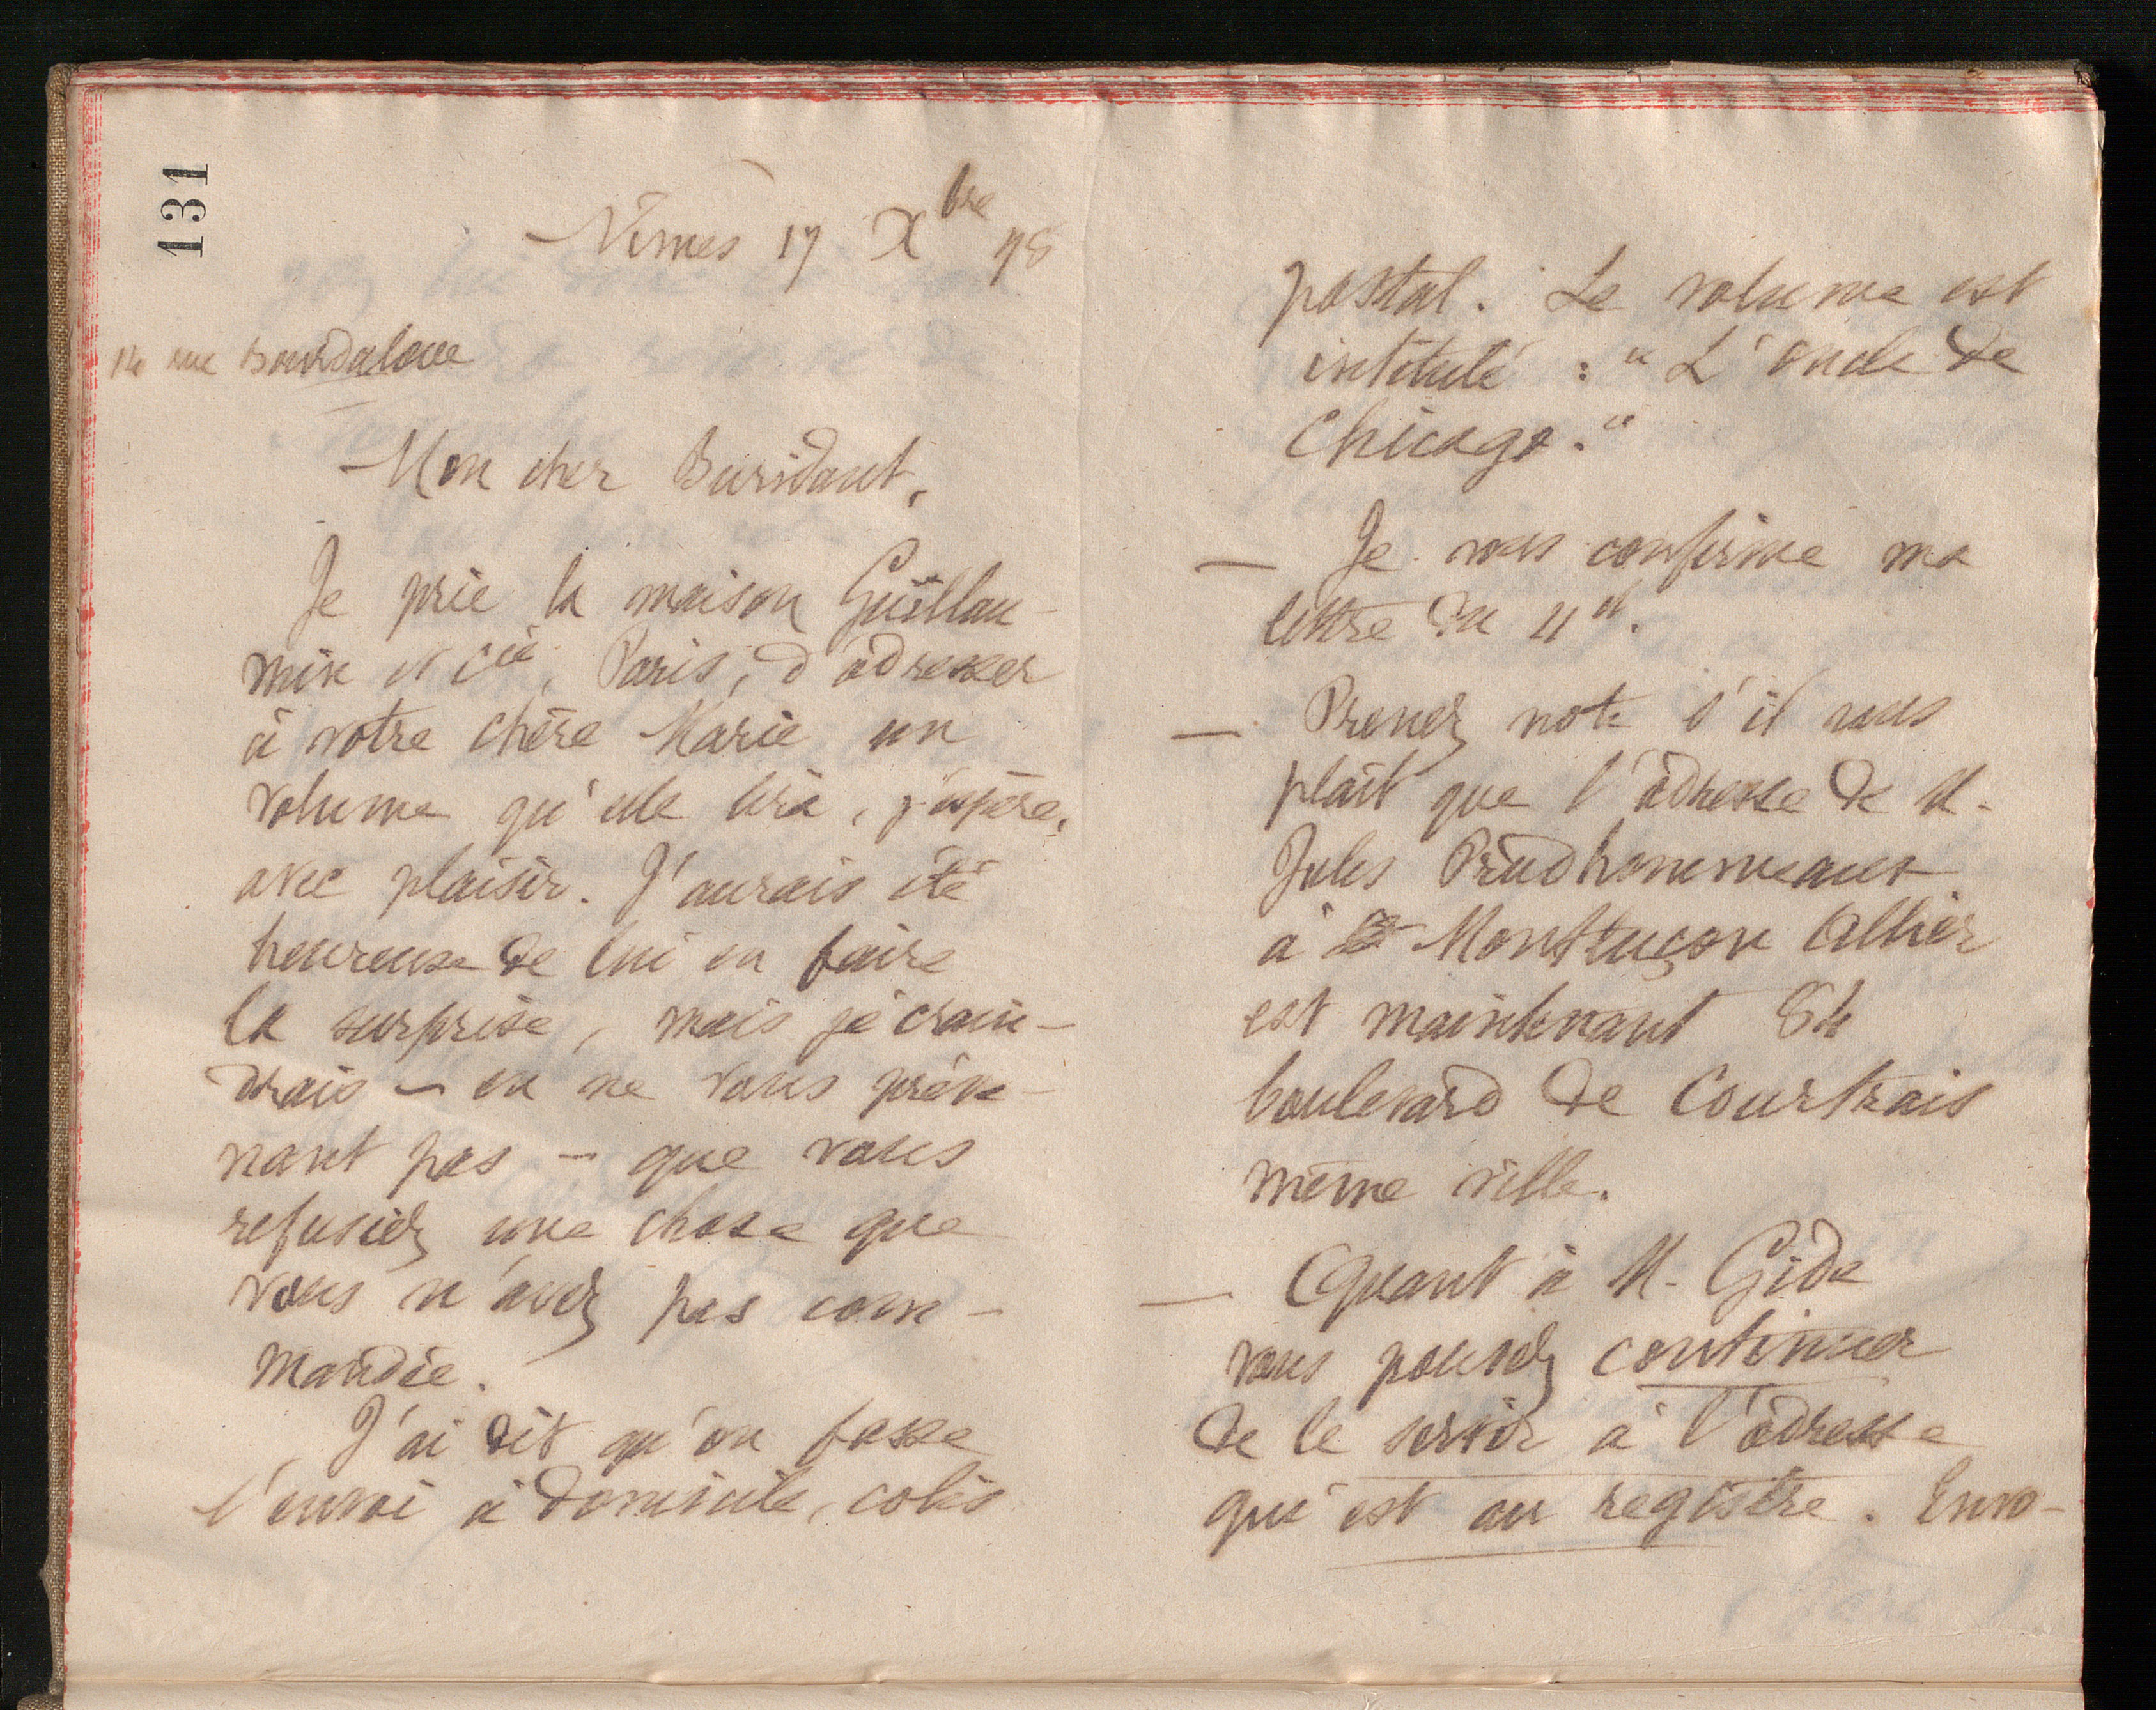 131
Nîmes 17 Xbre 98
14 rue Bourdaloue
Mon cher Buridant,
Je prie la maison Guillau-
min et Cie, Paris, d'adresser
à votre chère Marie un
volume qu'elle lira, j'espère,
avec plaisir. J'aurais été
heureuse de lui en faire
la surprise, mais je crain-
drais – en ne vous préve-
nant pas – que vous
refusiez une chose que
vous n'avez pas com-
mandée.
J'ai dit qu'on fasse
l'envoi à domicile, colis
postal. Le volume est
intitulé : "L'oncle de
Chicago."
— Je vous confirme ma
lettre du 11 ct.
— Prenez note s'il vous
plaît que l'adresse de M.
Jules Prudhommeaux
à Montluçon Allier
est maintenant 84
boulevard de Courtrais
même ville.
— Quant à M. Gide
vous pouvez continuer
de le servir à l'adresse
qui est au registre. Envo-